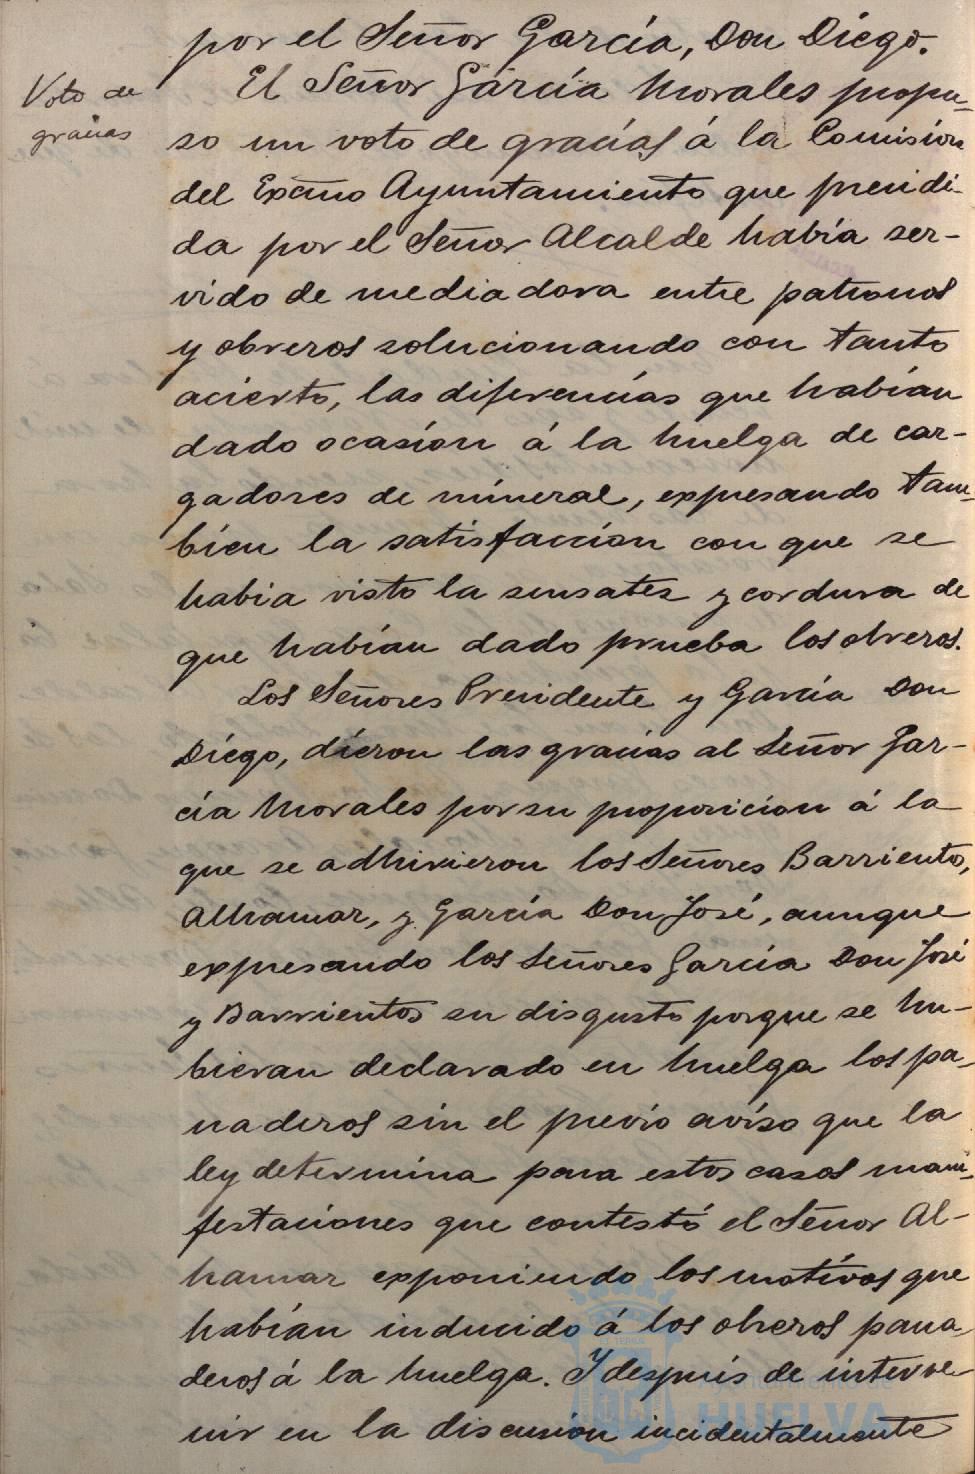 por el Señor García, Don Diego.
Voto de
gracias
El Señor García Morales propu-
so un voto de gracias á la Comisión
del Excmo Ayuntamiento que presidi-
da por el Señor Alcalde había ser-
vido de mediadora entre patronos
y obreros solucionando con tanto
acierto, las diferencias que habían
dado ocasión á la huelga de car-
gadores de mineral, expresando tam-
bien la satisfacción con que se
habia visto la sensatez y cordura de
que habían dado prueba los obreros.
Los Señores Presidente y García Don
Diego, dieron las gracias al Señor Gar-
cía Morales por su proposición á la
que se adhirieron los Señores Barrientos,
Alhamar, y García Don José, aunque
expresando los Señores García Don José
y Barrientos su disgusto porque se hu-
bieran declarado en huelga los pa-
naderos sin el previo aviso que la
ley determina para estos casos mani-
festaciones que contestó el Señor Al-
hamar exponiendo los motivos que
habían inducido á los obreros pana-
deros á la huelga. Y después de interve-
nir en la discusión incidentalmente
Ayuntamiento de
HUELVA